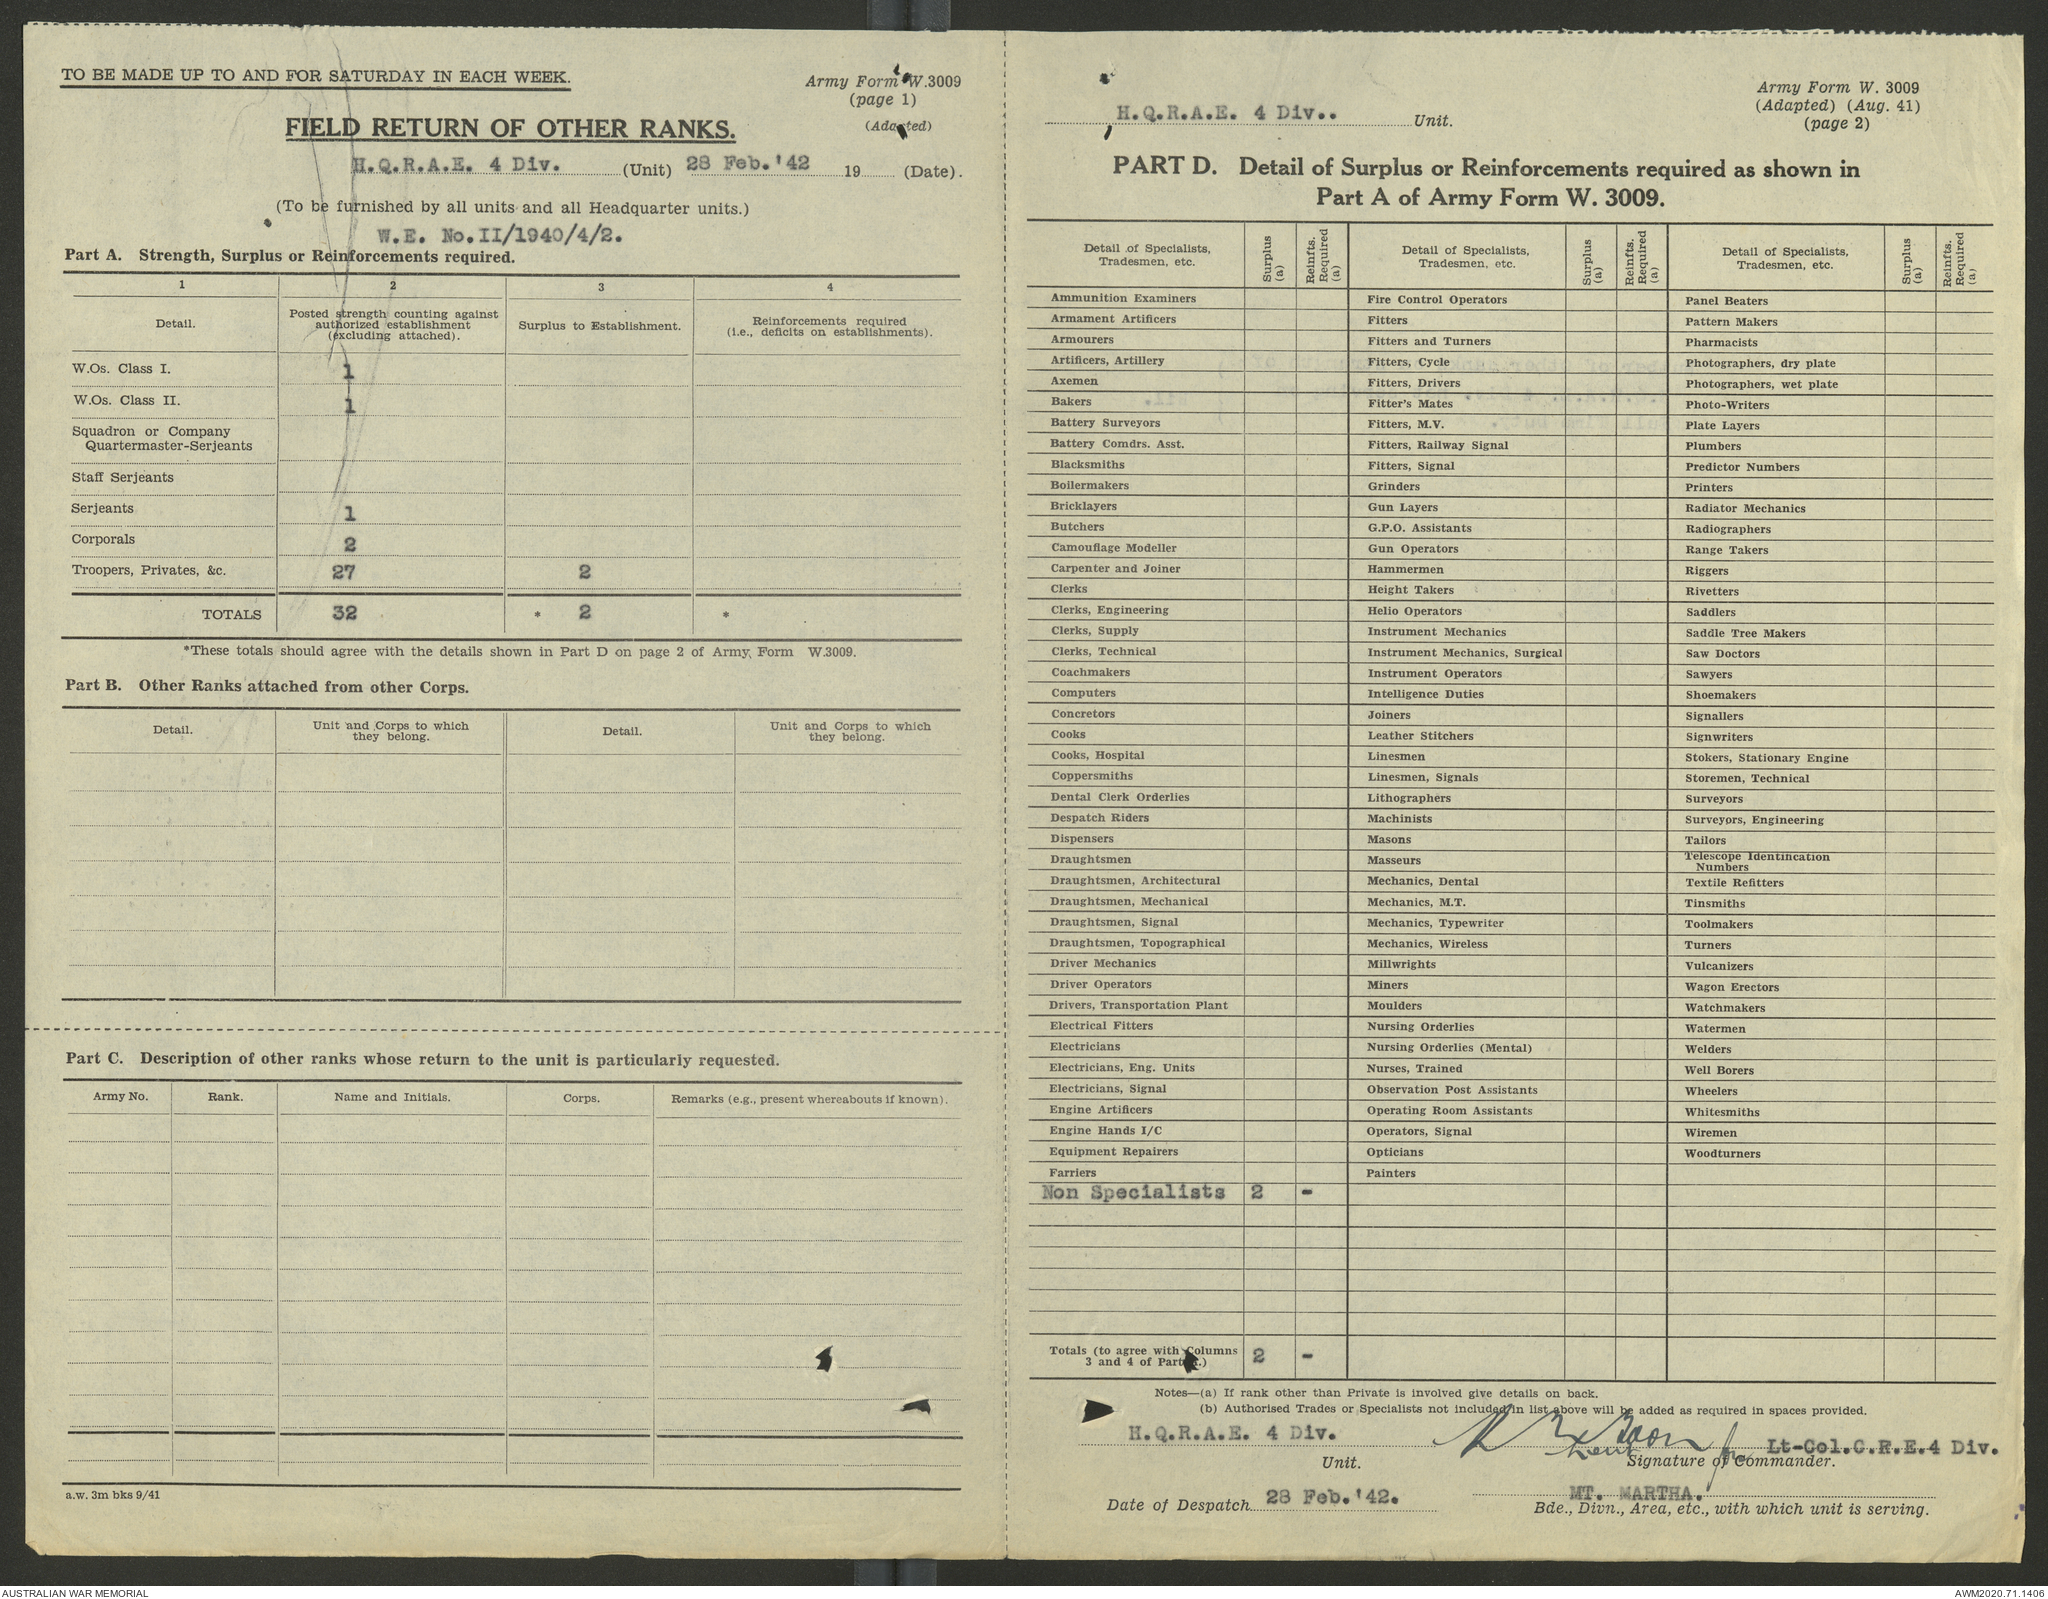 TO BE MADE UP TO AND FOR SATURDAY IN EACH WEEK.
Army Form W.3009
(page 1)
(Adapted)
FIELD RETURN OF OTHER RANKS.
H.Q.R.A.E. 4 Div. (Unit) 28 Feb.'42 19 (Date).
(To be furnished by all units and all Headquarter units.)
W.E. No.II/1940/4/2.
Part A. Strength, Surplus or Reinforcements required.
1 2 3 4
Detail. Posted strength counting against authorized establishment (excluding attached). Surplus to Establishment. Reinforcements required (i.e., deficits on establishments).
W.Os. Class I. 1
W.Os. Class II. 1
Squadron or Company
Quartermaster-Serjeants
Staff Serjeants
Serjeants 1
Corporals 2
Troopers, Privates, &c. 27 2
TOTALS 32 * 2 *
*These totals should agree with the details shown in Part D on page 2 of Army, Form W.3009.
Part B. Other Ranks attached from other Corps.
Detail. Unit and Corps to which they belong. Detail. Unit and Corps to which they belong.
Part C. Description of other ranks whose return to the unit is particularly requested.
Army No. Rank. Name and Initials. Corps. Remarks (e.g., present whereabouts if known).
a.w. 3m bks 9/41
H.Q.R.A.E. 4 Div.. Unit.
Army Form W. 3009
(Adapted) (Aug. 41)
(page 2)
PART D. Detail of Surplus or Reinforcements required as shown in
Part A of Army Form W. 3009.
Detail of Specialists, Tradesmen, etc. Surplus (a) Reinfts. Required (a) Detail of Specialists, Tradesmen, etc. Surplus (a) Reinfts. Required (a) Detail of Specialists, Tradesmen, etc. Surplus (a) Reinfts. Required (a)
Ammunition Examiners Fire Control Operators Panel Beaters
Armament Artificers Fitters Pattern Makers
Armourers Fitters and Turners Pharmacists
Artificers, Artillery Fitters, Cycle Photographers, dry plate
Axemen Fitters, Drivers Photographers, wet plate
Bakers Fitter's Mates Photo-Writers
Battery Surveyors Fitters, M.V. Plate Layers
Battery Comdrs. Asst. Fitters, Railway Signal Plumbers
Blacksmiths Fitters, Signal Predictor Numbers
Boilermakers Grinders Printers
Bricklayers Gun Layers Radiator Mechanics
Butchers G.P.O. Assistants Radiographers
Camouflage Modeller Gun Operators Range Takers
Carpenter and Joiner Hammermen Riggers
Clerks Height Takers Rivetters
Clerks, Engineering Helio Operators Saddlers
Clerks, Supply Instrument Mechanics Saddle Tree Makers
Clerks, Technical Instrument Mechanics, Surgical Saw Doctors
Coachmakers Instrument Operators Sawyers
Computers Intelligence Duties Shoemakers
Concretors Joiners Signallers
Cooks Leather Stitchers Signwriters
Cooks, Hospital Linesmen Stokers, Stationary Engine
Coppersmiths Linesmen, Signals Storemen, Technical
Dental Clerk Orderlies Lithographers Surveyors
Despatch Riders Machinists Surveyors, Engineering
Dispensers Masons Tailors
Draughtsmen Masseurs Telescope Identification Numbers
Draughtsmen, Architectural Mechanics, Dental Textile Refitters
Draughtsmen, Mechanical Mechanics, M.T. Tinsmiths
Draughtsmen, Signal Mechanics, Typewriter Toolmakers
Draughtsmen, Topographical Mechanics, Wireless Turners
Driver Mechanics Millwrights Vulcanizers
Driver Operators Miners Wagon Erectors
Drivers, Transportation Plant Moulders Watchmakers
Electrical Fitters Nursing Orderlies Watermen
Electricians Nursing Orderlies (Mental) Welders
Electricians, Eng. Units Nurses, Trained Well Borers
Electricians, Signal Observation Post Assistants Wheelers
Engine Artificers Operating Room Assistants Whitesmiths
Engine Hands I/C Operators, Signal Wiremen
Equipment Repairers Opticians Woodturners
Farriers Painters
Non Specialists 2 -
Totals (to agree with Columns 3 and 4 of Part A.) 2 -
Notes—(a) If rank other than Private is involved give details on back.
(b) Authorised Trades or Specialists not included in list above will be added as required in spaces provided.
H.Q.R.A.E. 4 Div. Lieut for Lt-Col.C.R.E.4 Div.
Unit. Signature of Commander.
Date of Despatch 28 Feb.'42. MT. MARTHA.
Bde., Divn., Area, etc., with which unit is serving.
AUSTRALIAN WAR MEMORIAL
AWM2020.71.1406